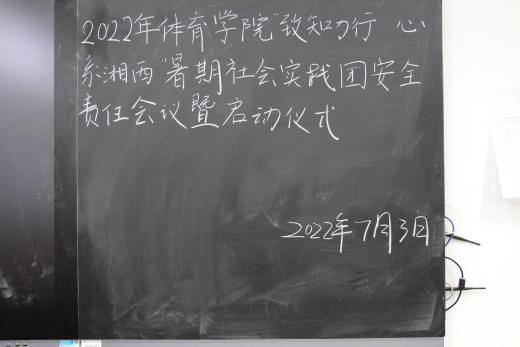 2022年体育学院“致知力行 心
系湘西”暑期社会实践团安全
责任会议暨启动仪式
2022年7月3日